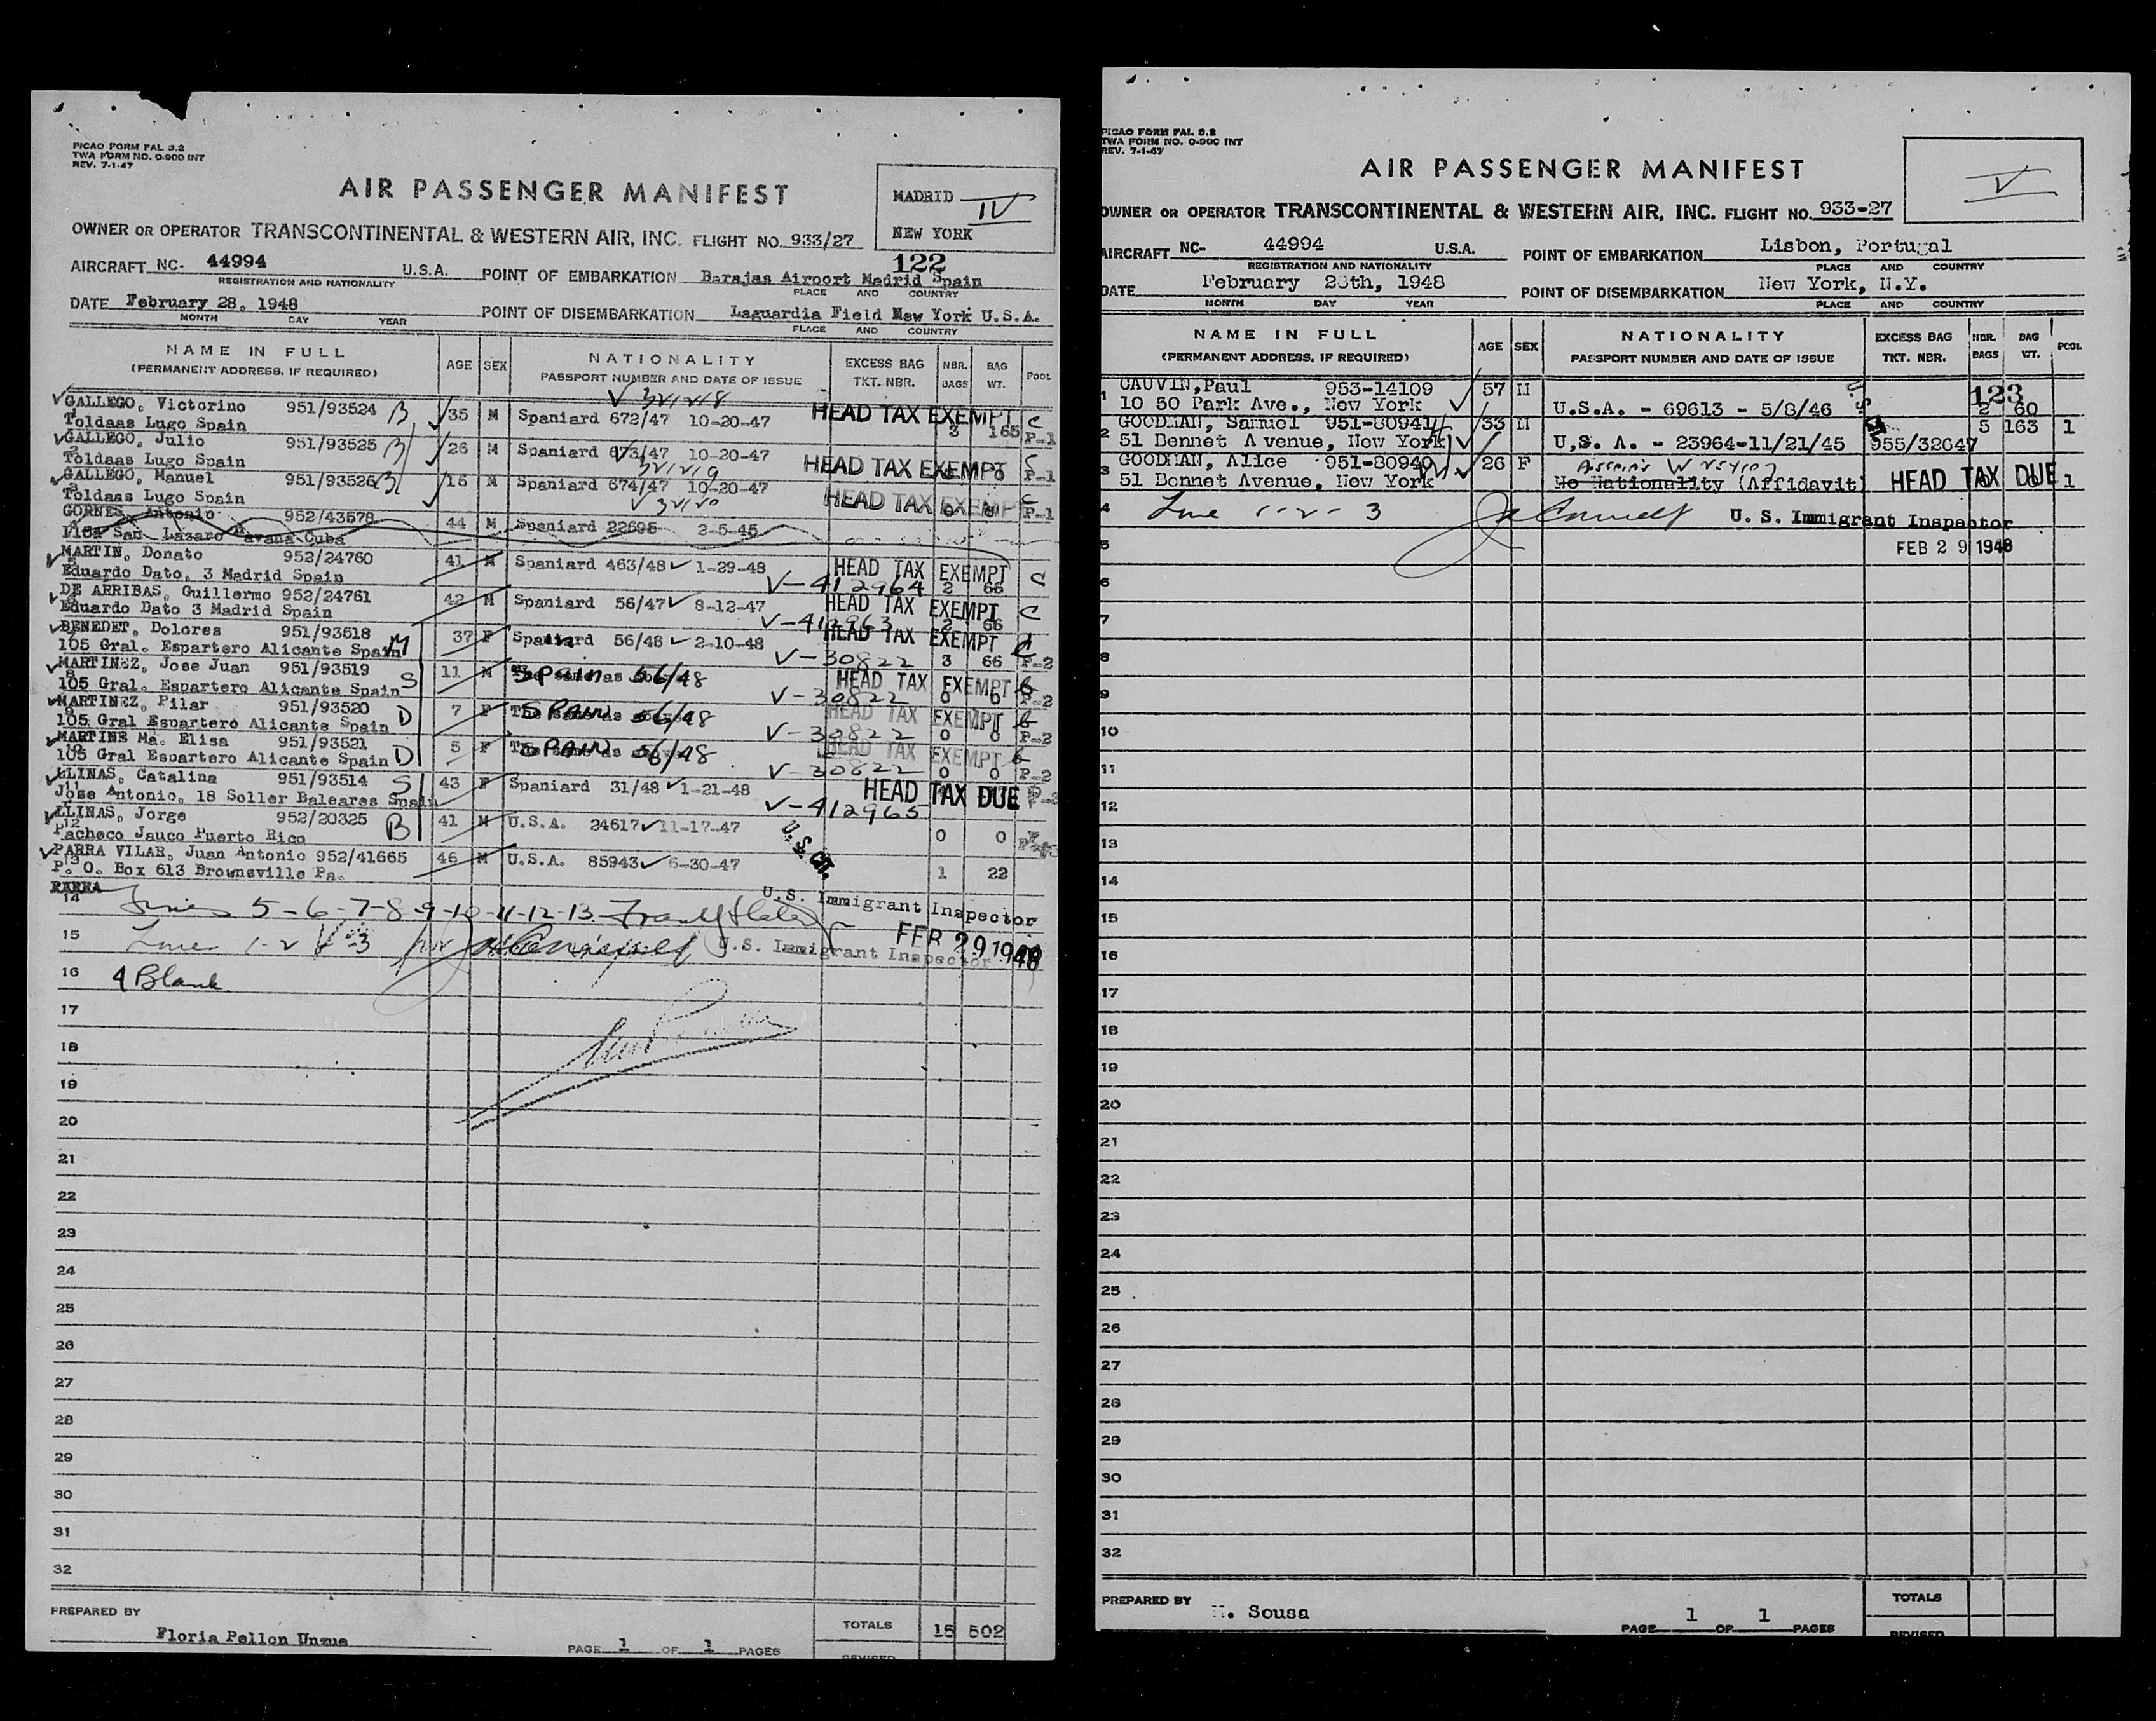 PICAO FORM FAL 3.2
TWA FORM NO. O-900 INT
REV. 7-1-47
AIR PASSENGER MANIFEST
MADRID
IV
NEW YORK
OWNER OR OPERATOR TRANSCONTINENTAL & WESTERN AIR, INC. FLIGHT NO. 933/27
122
AIRCRAFT NC- 44994 U.S.A. POINT OF EMBARKATION Barajas Airport Madrid Spain
REGISTRATION AND NATIONALITY PLACE AND COUNTRY
DATE February 28, 1948 POINT OF DISEMBARKATION Laguardia Field New York U.S.A.
MONTH DAY YEAR PLACE AND COUNTRY
NAME IN FULL AGE SEX NATIONALITY EXCESS BAG NBR. BAG POOL
(PERMANENT ADDRESS, IF REQUIRED) PASSPORT NUMBER AND DATE OF ISSUE TKT. NBR. BAGS WT.
GALLEGO, Victorino 951/93524 B 35 M Spaniard 672/47 10-20-47 HEAD TAX EXEMPT 3 165 C P-1
Toldaas Lugo Spain
GALLEGO, Julio 951/93525 B 26 M Spaniard 673/47 10-20-47 HEAD TAX EXEMPT C P-1
Toldaas Lugo Spain
GALLEGO, Manuel 951/93526 B 16 M Spaniard 674/47 10-20-47 HEAD TAX EXEMPT C P-1
Toldaas Lugo Spain
GORNES, Antonio 952/43578 44 M Spaniard 22698 2-5-45
San Lazaro Havana Cuba
MARTIN, Donato 952/24760 41 M Spaniard 463/48 1-29-48 HEAD TAX EXEMPT V-412964 2 66 C
Eduardo Dato, 3 Madrid Spain
DE ARRIBAS, Guillermo 952/24761 42 M Spaniard 56/47 8-12-47 HEAD TAX EXEMPT V-412963 2 66 C
Eduardo Dato 3 Madrid Spain
BENEDET, Dolores 951/93518 M 37 F Spaniard 56/48 2-10-48 HEAD TAX EXEMPT V-30822 3 66 C P-2
105 Gral. Espartero Alicante Spain
MARTINEZ, Jose Juan 951/93519 S 11 M SPAIN 56/48 HEAD TAX EXEMPT V-30822 0 0 P-2
105 Gral. Espartero Alicante Spain
MARTINEZ, Pilar 951/93520 D 7 F SPAIN 56/48 HEAD TAX EXEMPT V-30822 0 0 P-2
105 Gral Espartero Alicante Spain
MARTINE Ma. Elisa 951/93521 D 5 F SPAIN 56/48 HEAD TAX EXEMPT V-30822 0 0 P-2
105 Gral Espartero Alicante Spain
LLINAS, Catalina 951/93514 S 43 F Spaniard 31/48 1-21-48 HEAD TAX DUE V-412965
Jose Antonio, 18 Soller Baleares Spain
LLINAS, Jorge 952/20325 B 41 M U.S.A. 24617 11-17-47 0 0
Pacheco Jauco Puerto Rico
U.S. CIT.
PARRA VILAR, Juan Antonio 952/41665 46 M U.S.A. 85943 6-30-47 1 22
P. O. Box 613 Brownsville Pa.
PARRA
14 Lines 5-6-7-8-9-10-11-12-13 U.S. Immigrant Inspector
15 Lines 1-2 3 U.S. Immigrant Inspector FEB 29 1948
16 4 Blank
17
18
19
20
21
22
23
24
25
26
27
28
29
30
31
32
PREPARED BY Floria Pellon Unzue PAGE 1 OF 1 PAGES TOTALS 15 502
REVISED
PICAO FORM FAL 3.2
TWA FORM NO. O-900 INT
REV. 7-1-47
AIR PASSENGER MANIFEST
V
OWNER OR OPERATOR TRANSCONTINENTAL & WESTERN AIR, INC. FLIGHT NO. 933-27
AIRCRAFT NC- 44994 U.S.A. POINT OF EMBARKATION Lisbon, Portugal
REGISTRATION AND NATIONALITY PLACE AND COUNTRY
DATE February 28th, 1948 POINT OF DISEMBARKATION New York, N.Y.
MONTH DAY YEAR PLACE AND COUNTRY
NAME IN FULL AGE SEX NATIONALITY EXCESS BAG NBR. BAG POOL
(PERMANENT ADDRESS, IF REQUIRED) PASSPORT NUMBER AND DATE OF ISSUE TKT. NBR. BAGS WT.
123
1 CAUVIN, Paul 953-14109 57 M U.S.A. - 69613 - 5/8/46 2 60
10 50 Park Ave., New York
2 GOODMAN, Samuel 951-80941 H 33 M U,S. A. - 23964-11/21/45 955/32647 5 163 1
51 Bennet A venue, New York
3 GOODMAN, Alice 951-80940 W 26 F No Nationality (Affidavit) HEAD TAX DUE 0 0 1
51 Bennet Avenue, New York
4 Line 1-2-3 U. S. Immigrant Inspector
5 FEB 29 1948
6
7
8
9
10
11
12
13
14
15
16
17
18
19
20
21
22
23
24
25
26
27
28
29
30
31
32
PREPARED BY Sousa PAGE 1 OF 1 PAGES TOTALS
REVISED